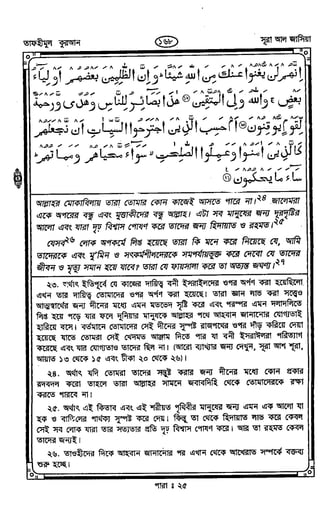 তাফহীমুল কুরআন
১৬৮
সূরা আল জাসিয়া
إِنَّهُمْ لَنْ يُغْنُوا عَنْكَ مِنَ اللَّهِ شَيْئًا ۚ وَإِنَّ الظَّالِمِينَ بَعْضُهُمْ أَوْلِيَاءُ
بَعْضٍ ۚ وَاللَّهُ وَلِيُّ الْمُتَّقِينَ ⑲ هَٰذَا بَصَائِرُ لِلنَّاسِ وَهُدًى وَرَحْمَةٌ
لِقَوْمٍ يُوقِنُونَ ⑳ أَمْ حَسِبَ الَّذِينَ اجْتَرَحُوا السَّيِّئَاتِ أَنْ نَجْعَلَهُمْ
كَالَّذِينَ آمَنُوا وَعَمِلُوا الصَّالِحَاتِ ۙ سَوَاءً مَحْيَاهُمْ وَمَمَاتُهُمْ ۚ
سَاءَ مَا يَحْكُمُونَ ㉑
আল্লাহর মোকাবিলায় তারা তোমার কোন কাজেই আসতে পারে না।২৪ জালেমরা
একে অপরের বন্ধু এবং মুত্তাকীদের বন্ধু আল্লাহ। এটা সব মানুষের জন্য দূরদৃষ্টির
আলো এবং যারা দৃঢ় বিশ্বাস পোষণ করে তাদের জন্য হিদায়াত ও রহমত।২৫
যেসব২৬ লোক অপকর্মে লিপ্ত হয়েছে তারা কি মনে করে নিয়েছে যে, আমি
তাদেরকে এবং মু'মিন ও সৎকর্মশীলদেরকে সমপর্যায়ভুক্ত করে দেবো যে তাদের
জীবন ও মৃত্যু সমান হয়ে যাবে? তারা যে ফায়সালা করে তা অত্যন্ত জঘণ্য।২৭
২৩. অর্থাৎ ইতিপূর্বে যে কাজের দায়িত্ব বনী ইসরাঈলদের ওপর অর্পণ করা হয়েছিলো
এখন তার দায়িত্ব তোমাদের ওপর অর্পণ করা হয়েছে। তারা জ্ঞান লাভ করা সত্ত্বেও
আত্মস্বার্থের জন্য দীনের মধ্যে এমন মতভেদ সৃষ্টি করে এবং পরস্পর এমন দলাদলিতে
লিপ্ত হয়ে পড়ে যার ফলে দুনিয়ার মানুষকে আল্লাহর পথে আহবান জানানোর যোগ্যতাই
হারিয়ে বসে। বর্তমানে তোমাদের সেই দীনের সুস্পষ্ট রাজপথের ওপর দাঁড় করিয়ে দেয়া
হয়েছে যাতে তোমরা সেই খেদমত আঞ্জাম দিতে পার যা বনী ইসরাঈলরা পরিত্যাগ
করেছে এবং যার যোগ্যতাও তাদের ছিল না। (আরো ব্যাখ্যার জন্য দেখুন, সূরা আশ শূরা,
আয়াত ১৩ থেকে ১৫ এবং টীকা ২০ থেকে ২৬।)
২৪. অর্থাৎ যদি তোমরা তাদের সন্তুষ্ট করার জন্য দীনের মধ্যে কোন প্রকার
রদবদল করো তাহলে তারা আল্লাহর সামনে জবাবদিহি থেকে তোমাদেরকে রক্ষা
করতে পারবে না।
২৫. অর্থাৎ এই কিতাব এবং এই শরীয়ত পৃথিবীর মানুষের জন্য এমন এক আলো যা
হক ও বাতিলের পার্থক্য সুস্পষ্ট করে দেয়। কিন্তু তা থেকে হিদায়াত লাভ করে কেবল
সেই সব লোক যারা তার সত্যতার প্রতি দৃঢ় বিশ্বাস পোষণ করে। আর তা রহমত কেবল
তাদের জন্যই।
২৬. তাওহীদের দিকে আহবান জানানোর পর এখান থেকে আখেরাত সম্পর্কে বক্তব্য
শুরু হচ্ছে।
পারা : ২৫